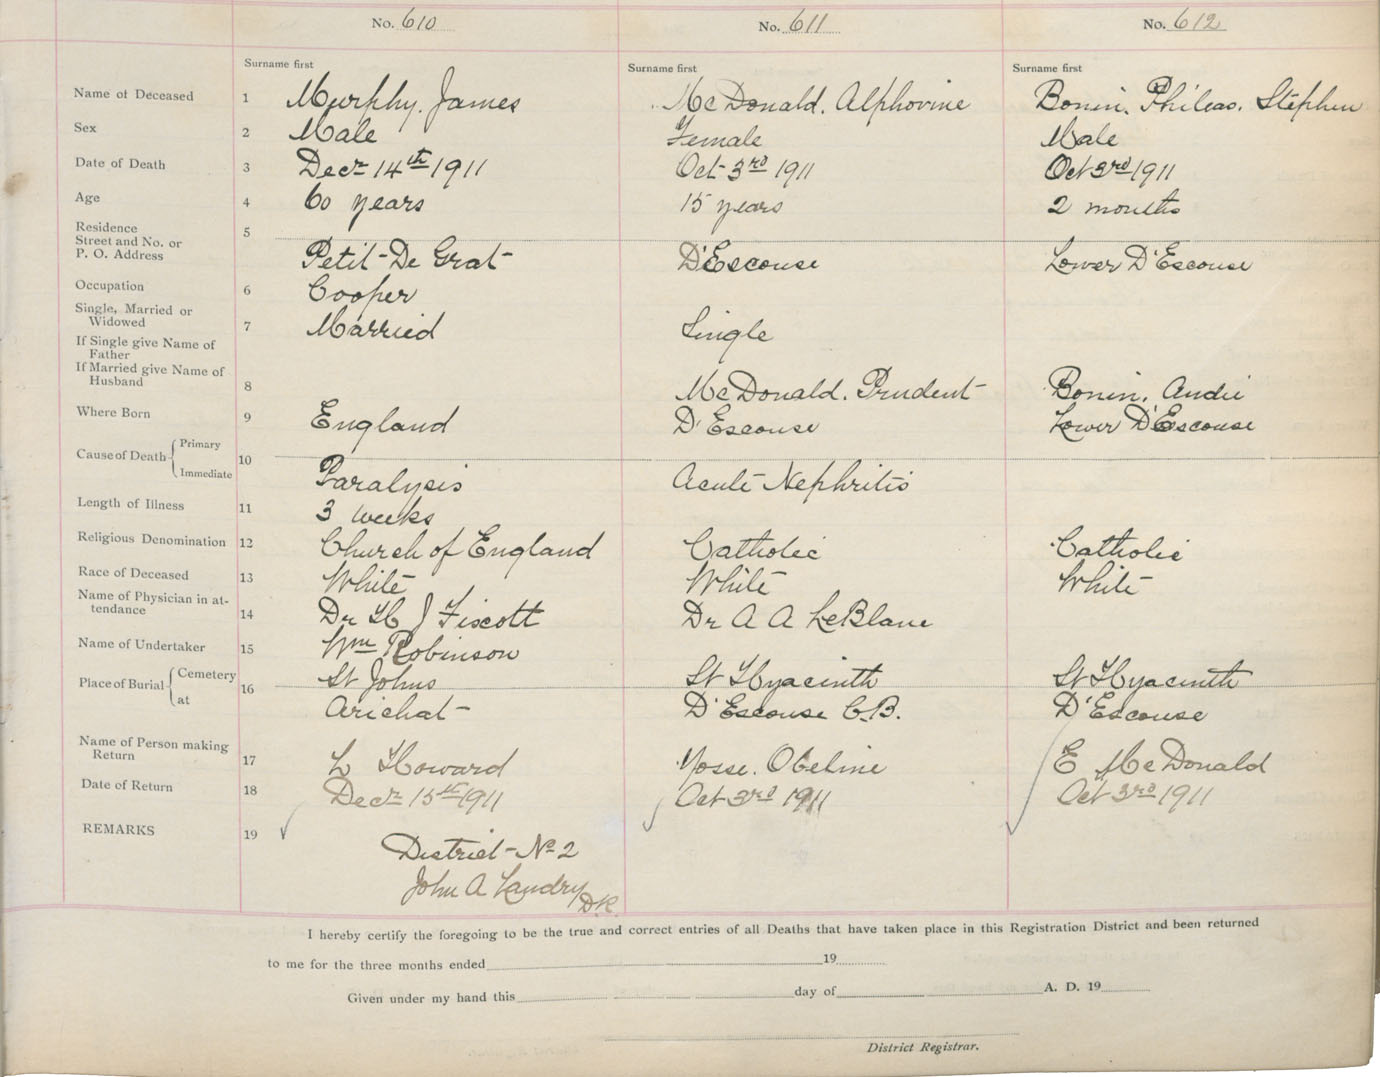 No. 610 No. 611 No. 612
Surname first Surname first Surname first
Name of Deceased 1 Murphy, James McDonald, Alphovine Bonin, Phileas, Stephen
Sex 2 Male Female Male
Date of Death 3 Decr 14th 1911 Oct 3rd 1911 Oct 3rd 1911
Age 4 60 years 15 years 2 months
Residence
Street and No. or 5
P. O. Address Petit-De Grat D'Escouse Lower D'Escouse
Occupation 6 Cooper
Single, Married or
Widowed 7 Married Single
If Single give Name of
Father
If Married give Name of
Husband 8 McDonald, Prudent Bonin, Andie
Where Born 9 England D'Escouse Lower D'Escouse
Cause of Death { Primary
Immediate 10 Paralysis Acute Nephritis
Length of Illness 11 3 weeks
Religious Denomination 12 Church of England Catholic Catholic
Race of Deceased 13 White White White
Name of Physician in at-
tendance 14 Dr H J Fiscott Dr A A LeBlanc
Name of Undertaker 15 Wm Robinson
Place of Burial { Cemetery 16 St Johns St Hyacinth St Hyacinth
at Arichat D'Escouse C.B. D'Escouse
Name of Person making
Return 17 L Howard Yosse, Obeline E McDonald
Date of Return 18 Decr 15th 1911 Oct 3rd 1911 Oct 3rd 1911
REMARKS 19
District No 2
John A Landry D.R.
I hereby certify the foregoing to be the true and correct entries of all Deaths that have taken place in this Registration District and been returned
to me for the three months ended 19
Given under my hand this day of A. D. 19
District Registrar.